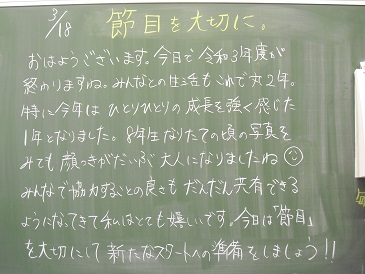 3/18
節目を大切に。
おはようございます。今日で令和3年度が
終わりますね。みんなとの生活もこれで丸2年。
特に今年はひとりひとりの成長を強く感じた
1年となりました。8年生なりたての頃の写真を
みても顔つきがだいぶ大人になりましたね
みんなで協力することの良さもだんだん共有できる
ようになってきて私はとても嬉しいです。今日は「節目」
を大切にして新たなスタートへの準備をしましょう!!